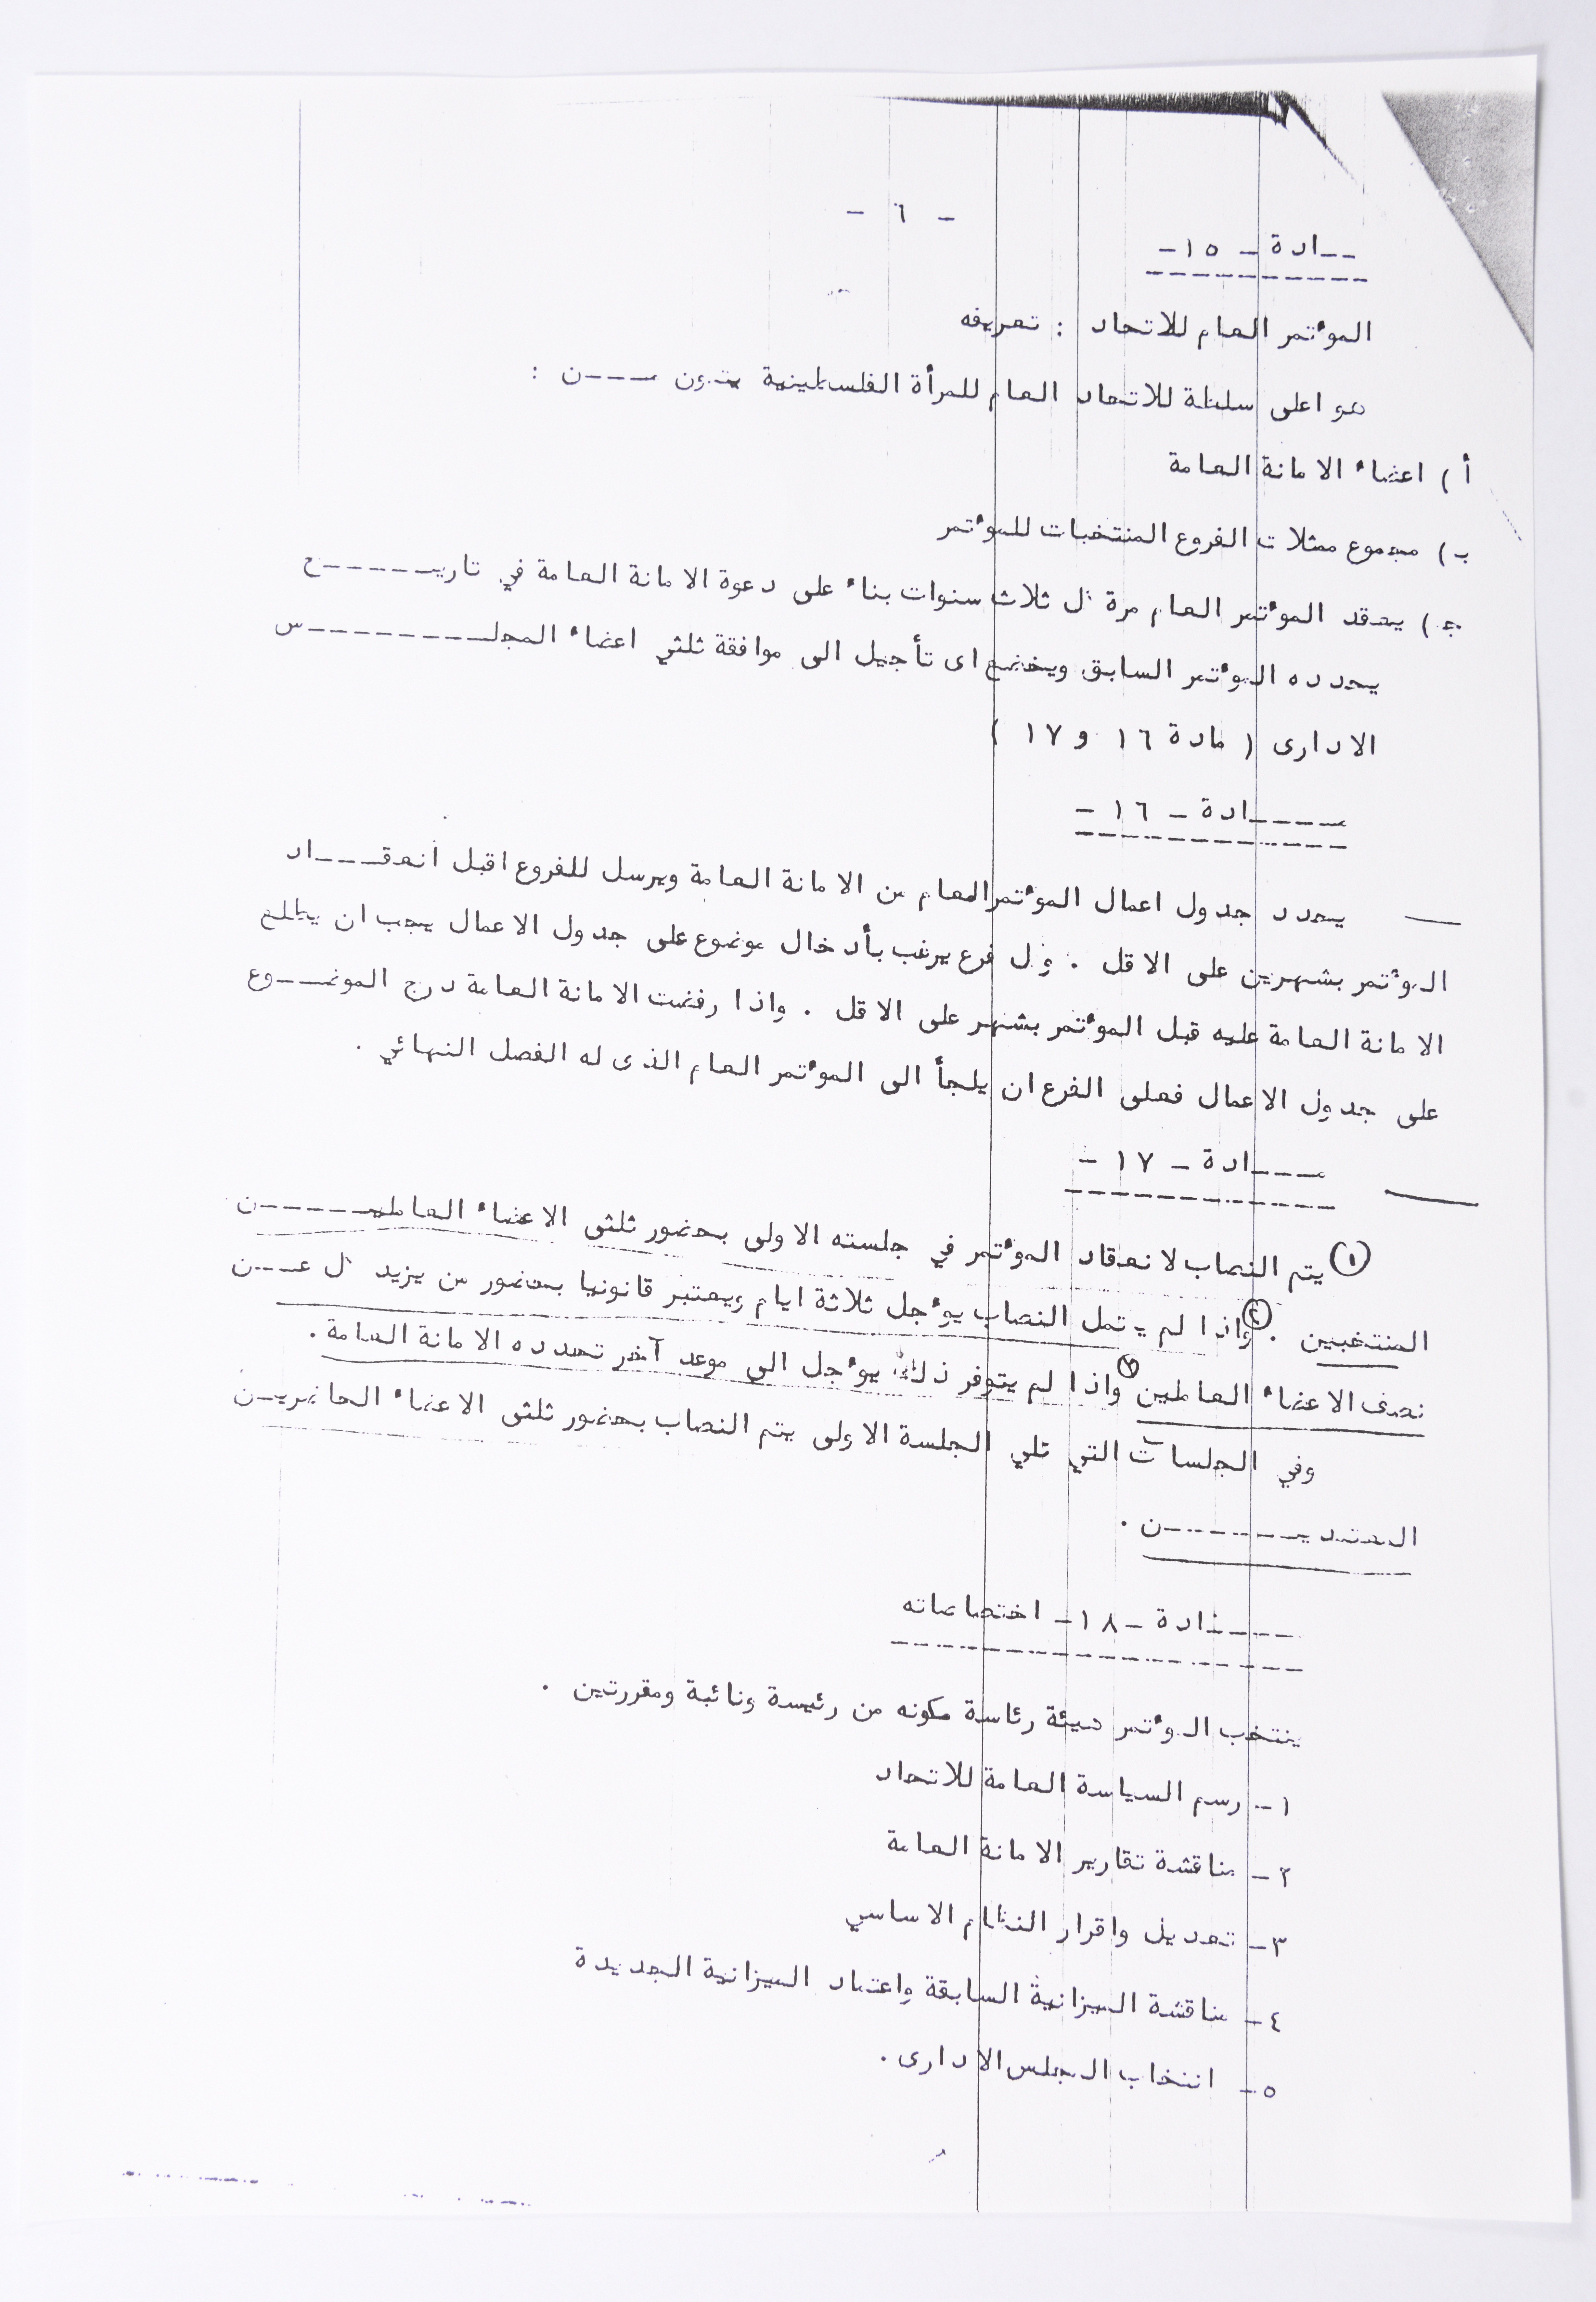 - ٦ -
ـــادة - ١٥ -
المؤتمر العام للاتحاد : تعريفه
هو اعلى سلطة للاتحاد العام للمرأة الفلسطينية يتكون مـــن :
أ ) اعضاء الامانة العامة
ب) مجموع ممثلات الفروع المنتخبات للمؤتمر
ج ) يعقد المؤتمر العام مرة كل ثلاث سنوات بناء على دعوة الامانة العامة في تاريـــــخ
يحدده المؤتمر السابق ويخضع اى تأجيل الى موافقة ثلثي اعضاء المجلـــــــس
الادارى ( مادة ١٦ و ١٧ )
مــــادة - ١٦ -
يحدد جدول اعمال المؤتمر العام من الامانة العامة ويرسل للفروع اقبل انعقـــاد
المؤتمر بشهرين على الاقل . وكل فرع يرغب بأدخال موضوع على جدول الاعمال يجب ان يطلع
الامانة العامة عليه قبل المؤتمر بشهر على الاقل . واذا رفضت الامانة العامة درج الموضـــوع
على جدول الاعمال فعلى الفرع ان يلجأ الى المؤتمر العام الذى له الفصل النهائي .
مــــادة - ١٧ -
(١) يتم النصاب لانعقاد المؤتمر في جلسته الاولى بحضور ثلثى الاعضاء العامليـــــن
المنتخبين . (٢) واذا لم يكتمل النصاب يؤجل ثلاثة ايام ويعتبر قانونيا بحضور من يزيد كل عـــن
نصف الاعضاء العاملين (٣) واذا لم يتوفر ذلك يؤجل الى موعد آخر تحدده الامانة العامة .
وفي الجلسات التي تلي الجلسة الاولى يتم النصاب بحضور ثلثى الاعضاء الحاضريـــن
المعتمديــــــــن .
مــــادة - ١٨ - اختصاصاته
ينتخب المؤتمر هيئة رئاسة مكونه من رئيسة ونائبة ومقررتين .
١- رسم السياسة العامة للاتحاد
٢- مناقشة تقارير الامانة العامة
٣- تعديل واقرار النظام الاساسي
٤- مناقشة الميزانية السابقة واعتماد الميزانية الجديدة
٥- انتخاب المجلس الادارى .